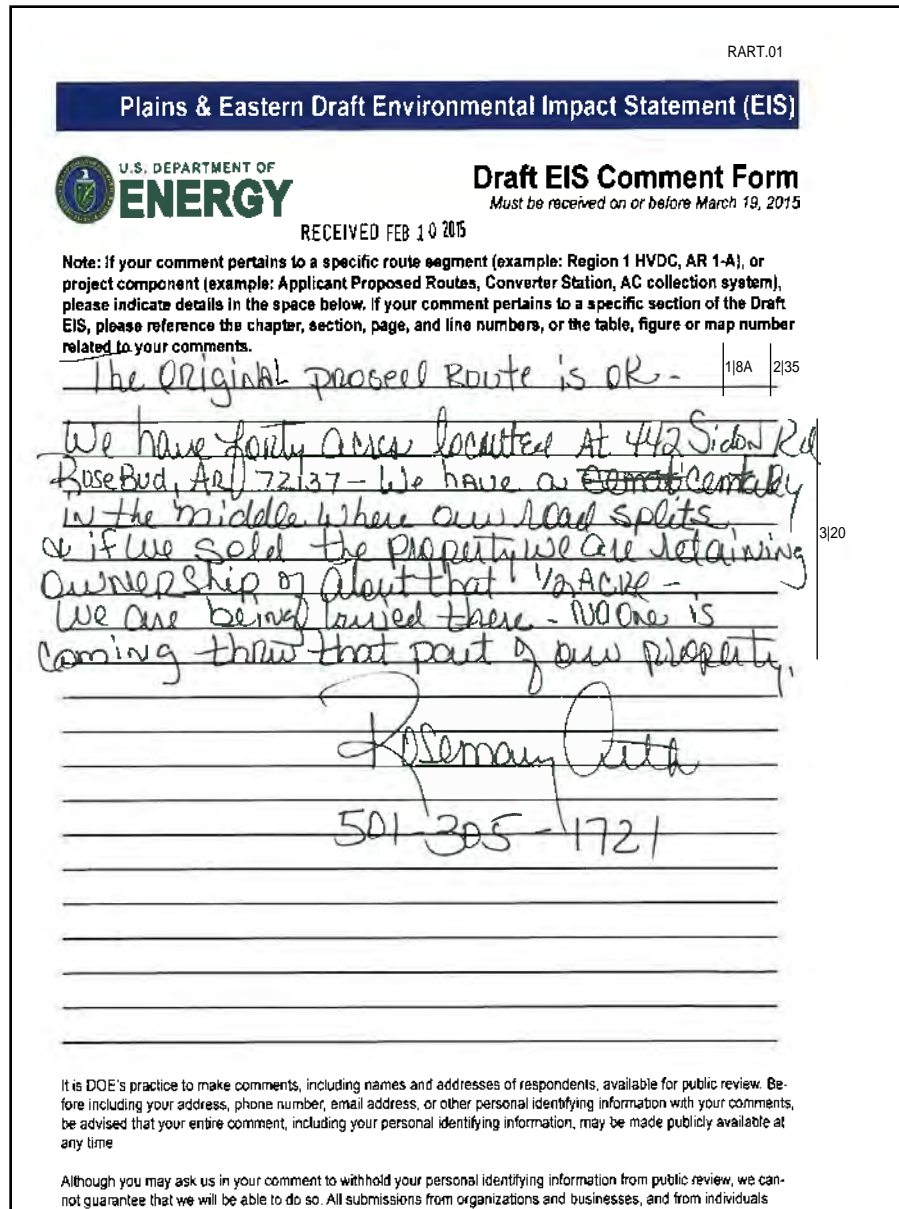 RART.01
Plains & Eastern Draft Environmental Impact Statement (EIS)
U.S. DEPARTMENT OF
ENERGY
Draft EIS Comment Form
Must be received on or before March 19, 2015
RECEIVED FEB 10 2015
Note: If your comment pertains to a specific route segment (example: Region 1 HVDC, AR 1-A), or
project component (example: Applicant Proposed Routes, Converter Station, AC collection system),
please indicate details in the space below. If your comment pertains to a specific section of the Draft
EIS, please reference the chapter, section, page, and line numbers, or the table, figure or map number
related to your comments.
The ORIGINAL proseel Route is OK -
1|8A 2|35
We have forty acres locatted At 442 Sidon Rd
RoseBud, AR 72137 - We have a Cematary
in the middle where our road splits
& if we sold the property we are retaining
3|20
OwnerShip of about that 1/2 ACRE -
We are being buried there - NO One is
Coming thru that part of our property.
Rosemary
501-305-1721
It is DOE's practice to make comments, including names and addresses of respondents, available for public review. Be-
fore including your address, phone number, email address, or other personal identifying information with your comments,
be advised that your entire comment, including your personal identifying information, may be made publicly available at
any time
Although you may ask us in your comment to withhold your personal identifying information from public review, we can-
not guarantee that we will be able to do so. All submissions from organizations and businesses, and from individuals